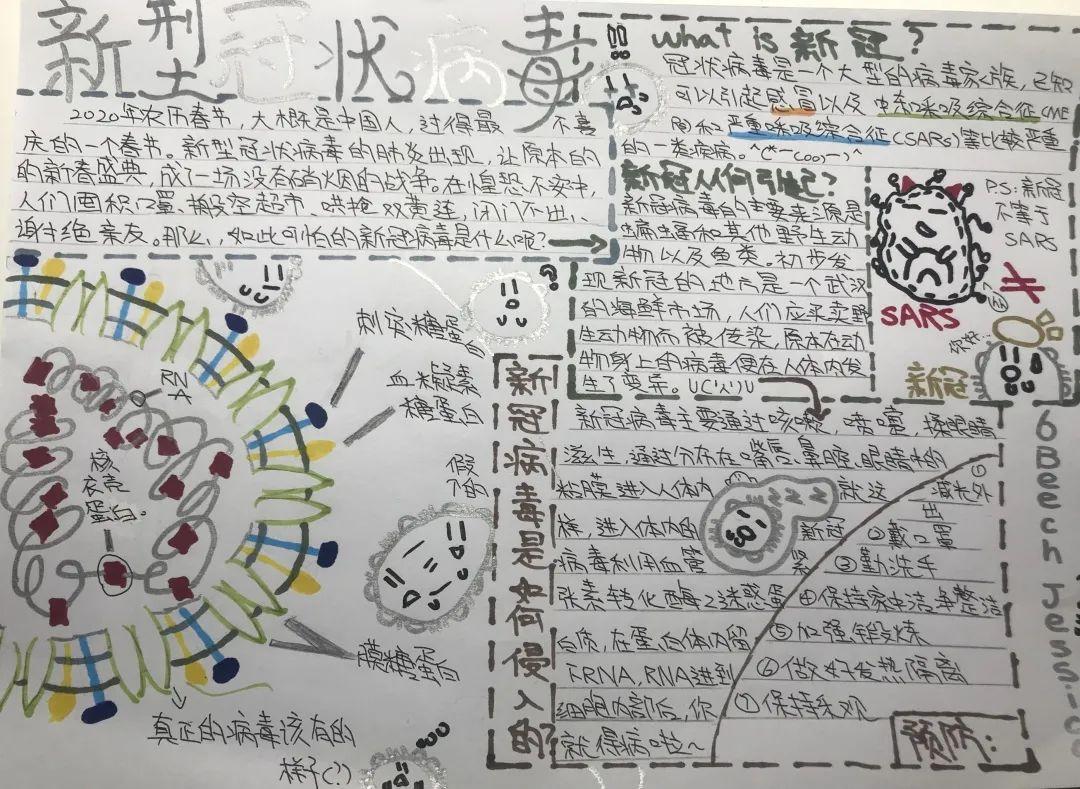 新型冠状病毒
2020年农历春节，大概是中国人，过得最 不喜
庆的一个春节。新型冠状病毒的肺炎出现，让原本的
的新春盛典，成了一场没有硝烟的战争。在惶恐不安中，
人们囤积口罩、搬空超市、哄抢双黄连，闭门不出、
谢绝亲友。那么，如此可怕的新冠病毒是什么呢？
What is 新冠？
冠状病毒是一个大型的病毒家族，已知
可以引起感冒以及 中东呼吸综合征(ME
严重呼吸综合征(SARs)等比较严重
的一类疾病。
新冠从何引起？
新冠病毒的主要来源是
和其他野生动
物以及鱼类。初步发
现新冠的地方是一个武汉
的海鲜市场，人们应买卖野
生动物而被传染，原本在动
物身上的病毒便在人体内发
生了变异。
P.S：新冠
不等于
SARS
SARS
≠
你好...
新冠
刺突糖蛋白
血凝素
糖蛋白
RN
A
核
衣壳
蛋白。
假
的
膜糖蛋白
真正的病毒该有的
样子(?)
新冠病毒是如何侵入的?
新冠病毒主要通过咳嗽，喷嚏，揉眼睛
滋生，通过分布在嘴唇、鼻腔、眼睛的
粘膜进入人体内 就这
样，进入体内的 新冠
病毒利用血管 紧
张素转化酶2迷惑蛋
白质，在蛋白体内留
下RNA，RNA进到
细胞内部后，你
就得病啦～
预防：
① 减少外
出
②戴口罩
③勤洗手
④保持家中洁净整洁
⑤加强锻炼
⑥做好发热隔离
⑦保持乐观
6 Beech Jessica